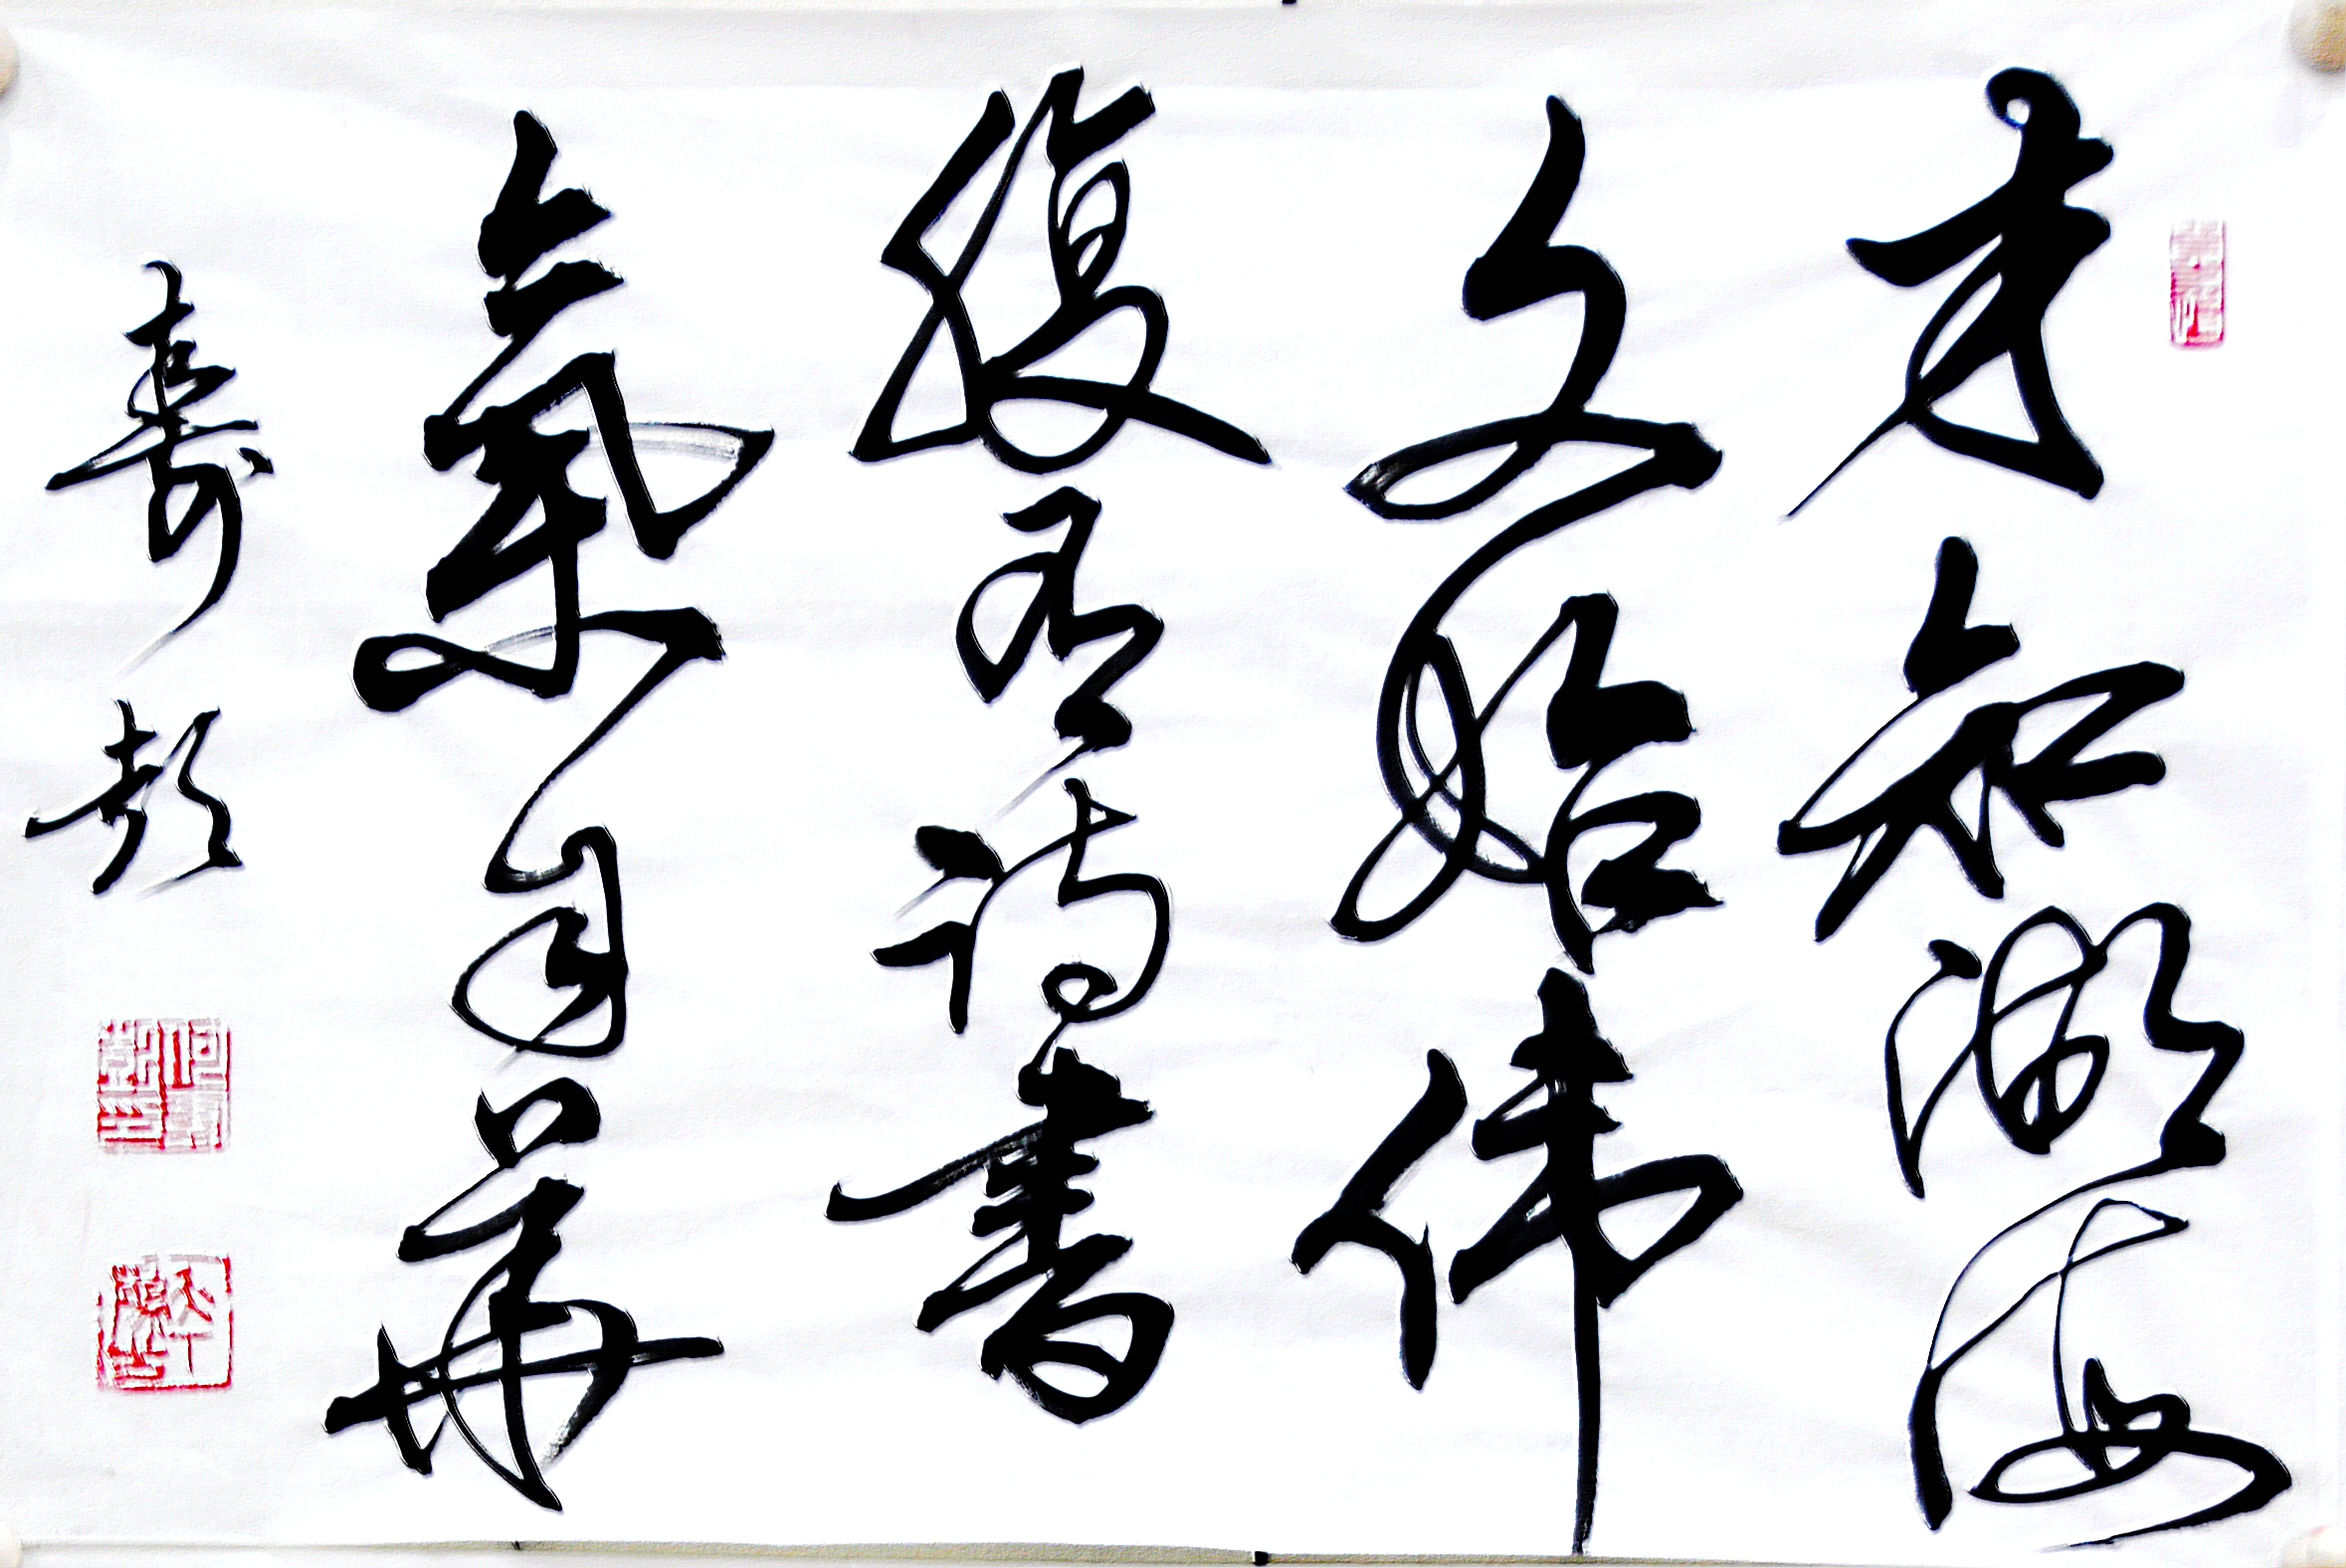 才知湖海
文始伟
腹有詩書
氣自華
壽彭